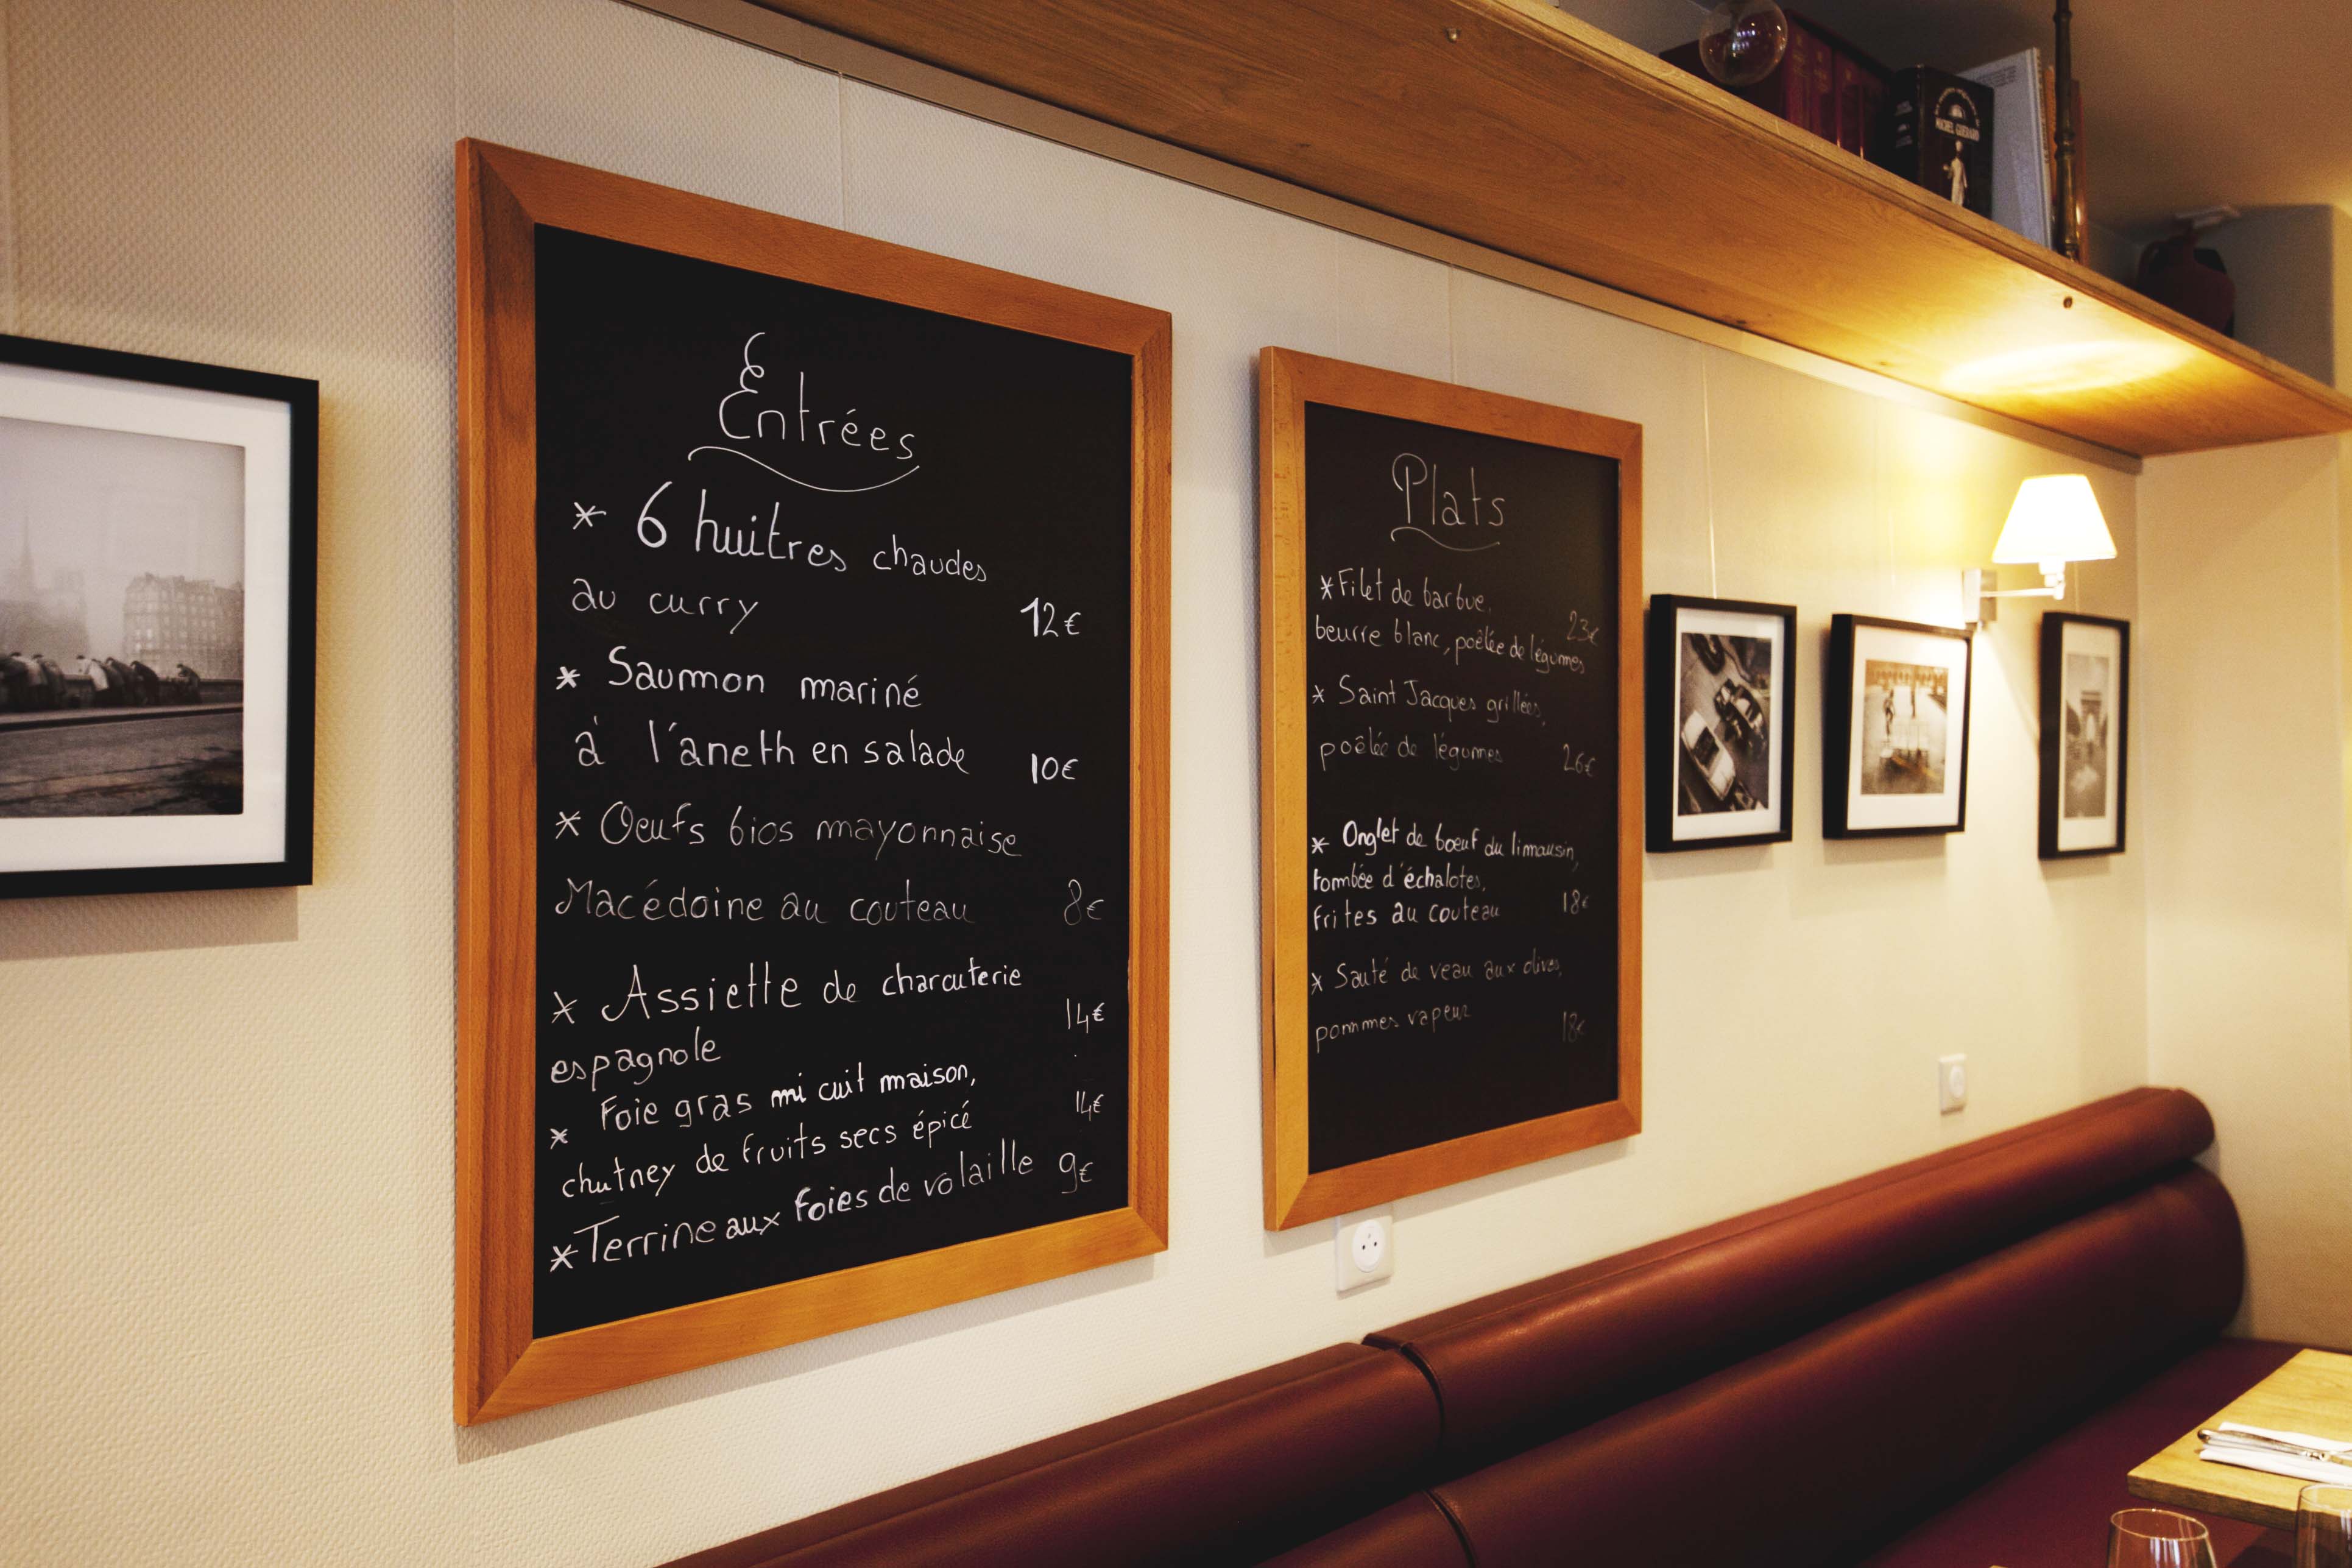 Entrées
* 6 huitres chaudes
au curry 12€
* Saumon mariné
à l'aneth en salade 10€
* Oeufs bios mayonnaise
Macédoine au couteau 8€
* Assiette de charcuterie
14€
espagnole
* Foie gras mi cuit maison,
14€
chutney de fruits secs épicé
* Terrine aux foies de volaille 9€
Plats
* Filet de barbue,
23€
beurre blanc, poêlée de légumes
* Saint Jacques grillées,
poêlée de légumes 26€
* Onglet de boeuf du limousin,
tombée d'échalotes,
frites au couteau 18€
* Sauté de veau aux olives,
pommes vapeur 18€
MICHEL GUERARD